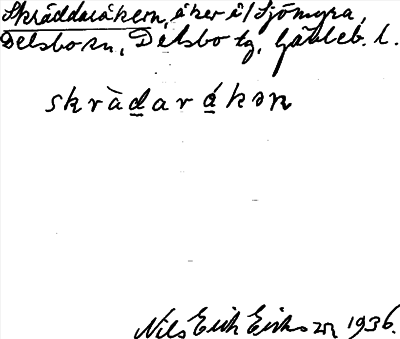 Skräddaråkern, åker å/ Sjömyra,
Delsbo sn, Delsbo tg, Gävleb. l.
skràd̲ará̲kən
Nils Erik Eriksson 1936.